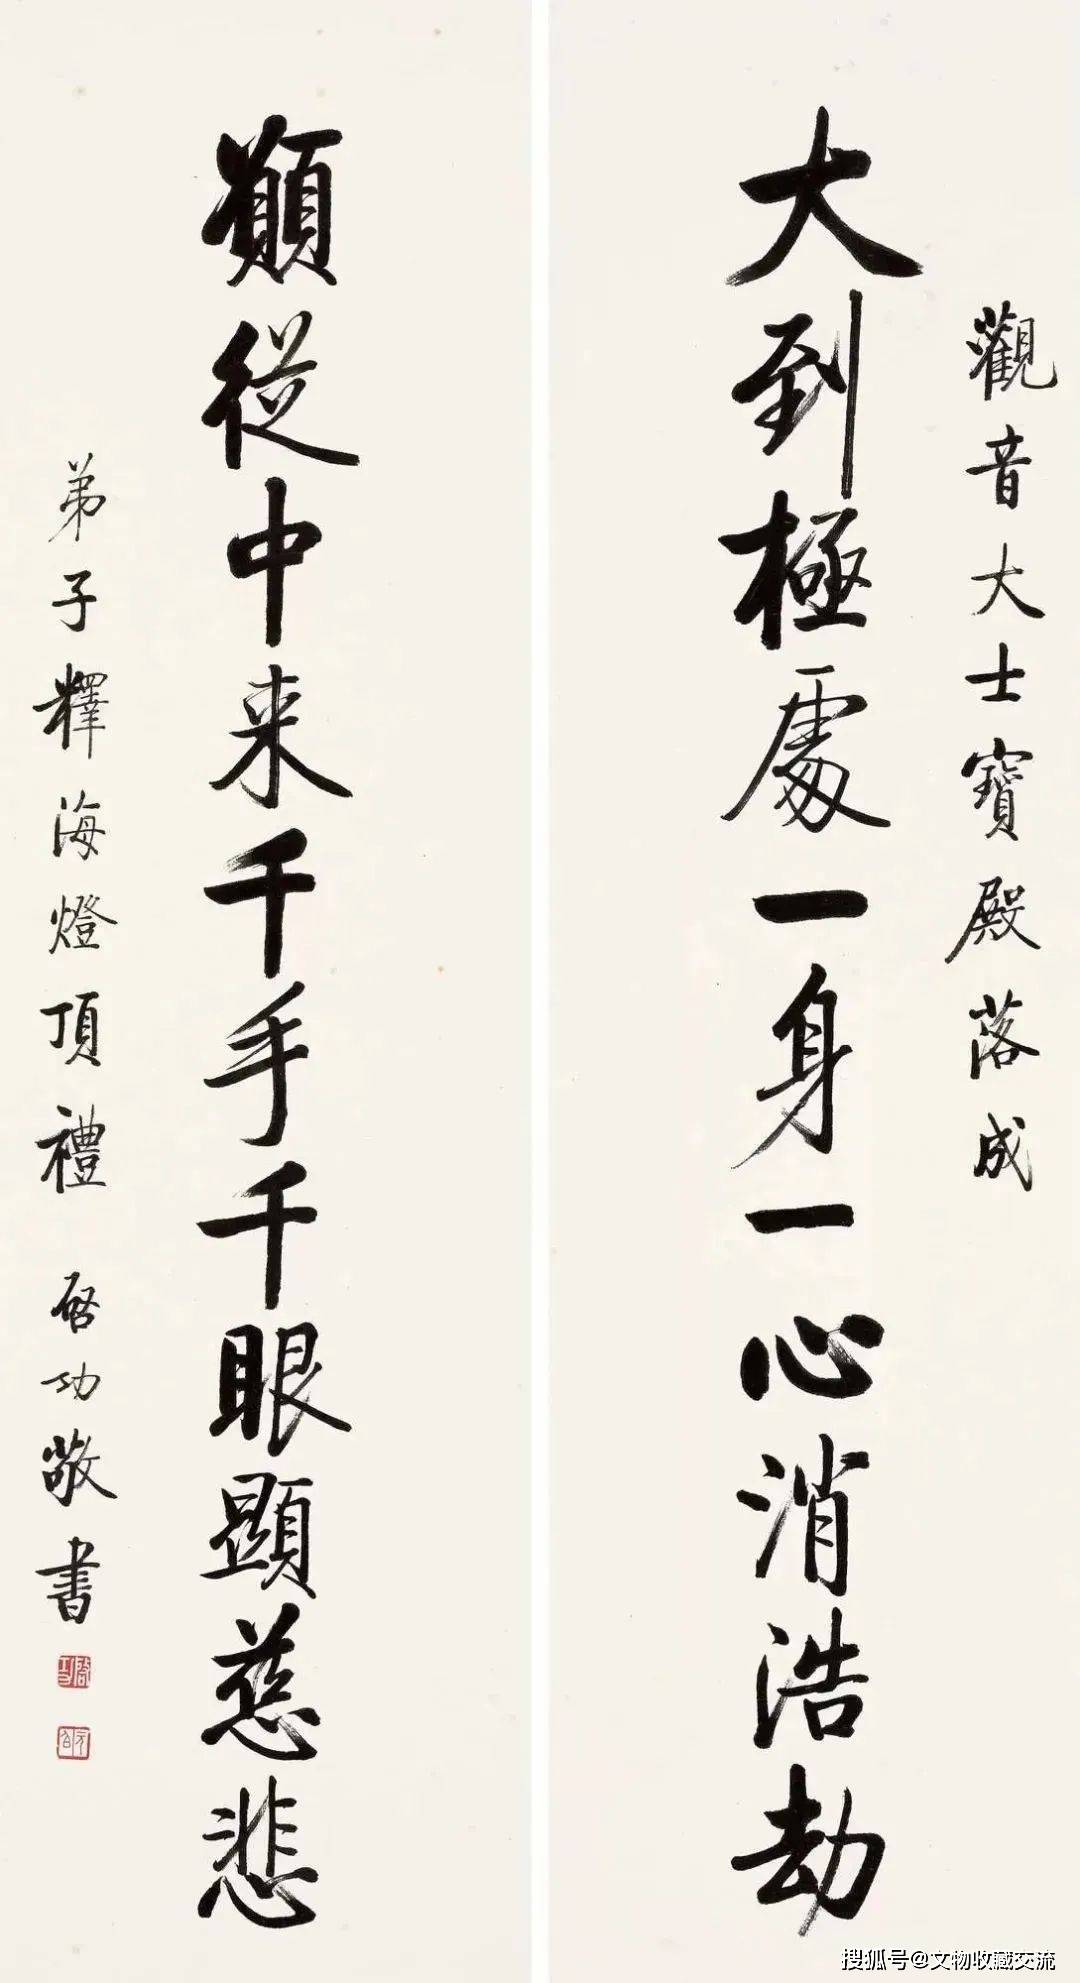 觀音大士寶殿落成
大到極處一身一心消浩劫
願從中来千手千眼顯慈悲
弟子釋海燈頂禮 啓功敬書
啓功
元白
搜狐号@文物收藏交流